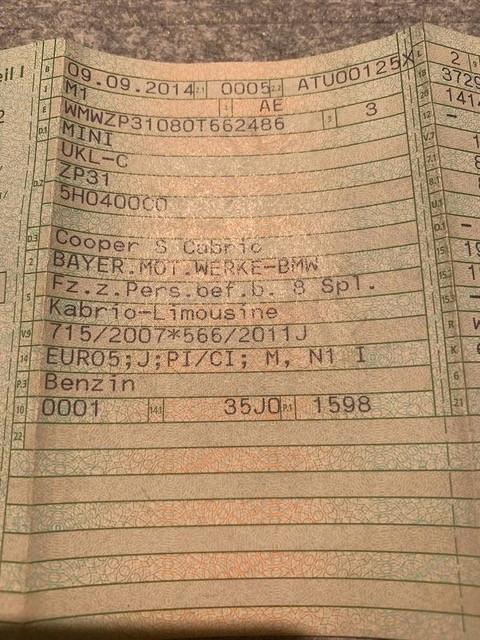 eil I
B 09.09.2014 2.1 0005 2.2 ATU00125X L 2
J M1 AE 18 3729
E WMWZP31080T662486 3 3 1414
D.1 MINI
UKL-C
D.2 ZP31
5H0400C0
D.3 Cooper S Cabrio
2 BAYER.MOT.WERKE-BMW
5 Fz.z.Pers.bef.b. 8 Spl.
Kabrio-Limousine
V.9 715/2007*566/2011J
14 EURO5;J;PI/CI; M, N1 I
P.3 Benzin
10 0001 14.1 35J0 P.1 1598 21
22